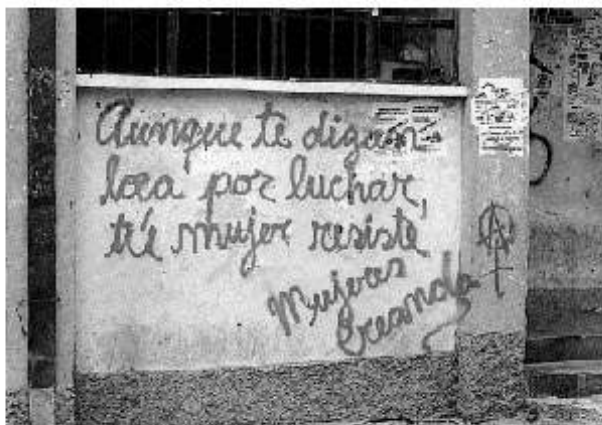 Aunque te digan
loca por luchar,
tú mujer resiste
Mujeres
Creando